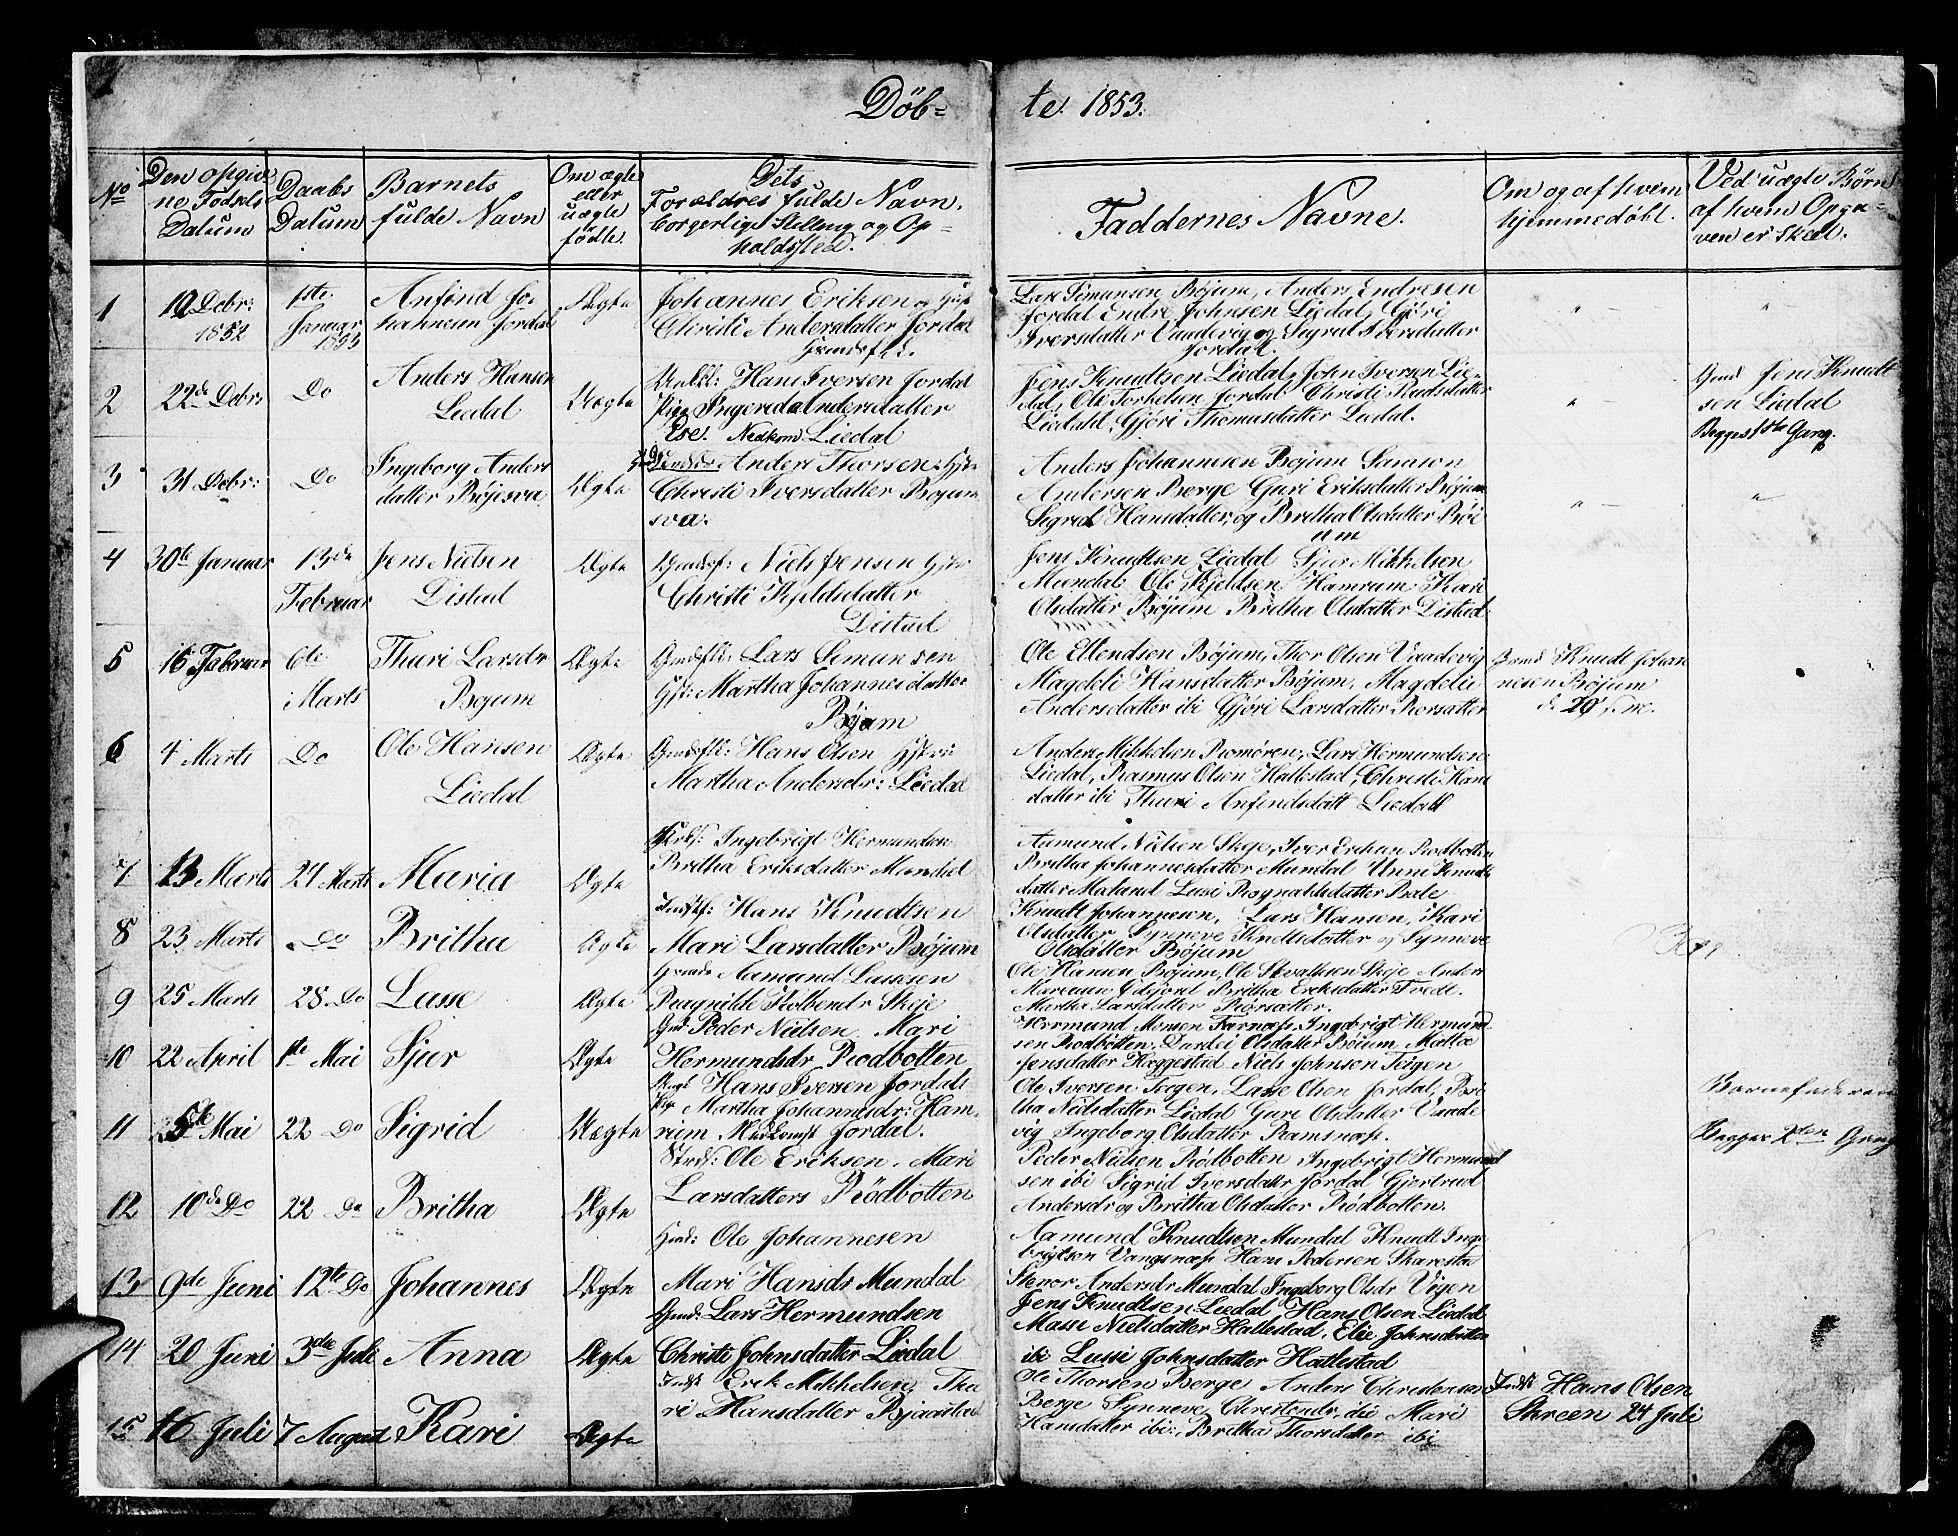 Döb= te. 1853.
No
Den opgiv=
ne Födsels
Datum
Daabs
Datum
Barnets
fulde Navn
Om ægte
eller
uægte
födte.
Dets
Forældres fulde Navn,
borgerlige Stilling og Op=
holdssted.
Faddernes Navne.
Om og af hvem
hjemmedöbt.
Ved uægte Börn
af hvem Opga=
ven er skeet.
1
19 Debr:
1852
1ste
Januar
1853
Anfind Jo=
hannesen Jordal
Ægte
Johannes Eriksen og
Christi Andersdatter Jordal
Lars Simunsen Böjum, Anders Endresen
Jordal Endre Johnsen Liedal, Gjöri
Iversdatter Vaadevig og Sigrid Iversdatter
Jordal.
2
22de Debr:
Do
Anders Hansen
Liedal
Uægte
Hans Iversen Jordal
Pige Ingerida Andersdatter
Ese. Nedkom Liedal
Jens Knudtsen Liedal, John Iversen Lie=
dal, Ole Torkelsen Jordal Christi
Liedahl, Gjöri Thomasdatter Liedal.
Jens Knudt
sen Liedal
Begges 1ste Gang.
3
31 Debr:
Do
Ingeborg Anders
datter Böjisva
Ægte
Anders Thorsen
Christi Iversdatter Bojum
sva.
Anders Johannesen Bojum Samson
Andersen Berge Guri Eriksdatter Böjum
Sigrid Hansdatter, og Britha Olsdatter Böi
um
4
30te Januar
13de
Februar
Jens Nielsen
Distad
Ægte
Niels Jensen
Christi Kjeldsdatter
Distad
Jens Knudtsen Liedal Sjur Mikkelsen
Mundal; Ole Kjeldsen Hamrum Kari
Olsdatter Böjum Britha Olsdatter Distad
5
16 Februar
6te
Marts
Thuri Larsdr
Bojum
Ægte
Lars Simunsen
Martha Johannesdatter
Böjum
Ole Ellendsen Böjum, Thor Olsen Vaadevig
Magdeli Hansdatter Böjum, Magdeli
Andersdatter ibi Gjöri Larsdatter
Knudt Johan
nesen Böjum
6
4 Marts
Do
Ole Hansen
Liedal
Ægte
Hans Olsen
Martha Andersdr: Liedal
Anders Mikkelsen Romören, Lars Hermundsen
Liedal, Rasmus Olsen Hallestad, Christi Hans
datter ibi Thuri Anfindsdatt Liedall
7
13 Marts
27 Marts
Maria
Ægte
Ingebrigt Hermundsen
Britha Eriksdatter Mundal
Aamund Nielsen Skeje, Iver Eriksen Rödbotten
Britha Johannesdatter Mundal Unni Knudts
datter Lussi Rognaldsdatter
8
23 Marts
Do
Britha
Ægte
Hans Knudtsen
Mari Larsdatter Böjum
Knudt Johannesen, Lars Hansen, Kari
Olsdatter Synneve Knudtsdatter og Synneve
Olsdatter Böjum
9
25 Marts
28 Do
Lasse
Ægte
Aamund Lassesen
Skeje
Ole Hansen Böjum, Ole Skeje Anders
Britha Eriksdatter Tvedt.
Martha Larsdatter
10
22 April
1ste Mai
Sjur
Ægte
Peder Nielsen Mari
Hermundsdr Rödbotten
Hermund Monsen Farnæs, Ingebrigt Hermund
sen Rödbotten, Durdei Olsdatter Böjum Malta
Jensdatter Haggestad Niels Johnsen Teigen
11
5te Mai
22 Do
Sigrid
Uægte
Hans Iversen Jordal
Martha Johannesdr: Ham,
rum Jordal.
Ole Iversen Teigen, Lasse Olsen Jordal, Bri
tha Nielsdatter Liedal Guri Olsdatter Vaade
vig Ingeborg Olsdatter Ramsnæs.
Barnefaderen
Begges 2den Gang
12
10de Do
22 Do
Britha
Ægte
Ole Eriksen. Mari
Larsdatters Rödbotten
Peder Nielsen Rödbotten Ingebrigt Hermund
sen ibi Sigrid Iversdatter Jordal Gjertrud
Andersdr og Britha Olsdatter Rödbotten.
13
9de Juni
12te Do
Johannes
Ægte
Ole Johannesen
Mari Hansdr Mundal
Aamund Knudtsen Mundal Knudt Inge
brigtson Vangsnæs Hans Pedersen
Andersdr Mundal Ingeborg Olsdr Vigen
14
20 Juni
3die Juli
Anna
Ægte
Lars Hermundsen
Christi Johnsdatter Liedal
Jens Knudtsen Liedal Hans Olsen Liedal
Massi Nielsdatter Hallestad, Elie Johnsdatter
ibi Lussi Johnsdatter Hatlestad
15
16 Juli
7 August
Kari
Ægte
Erik Mikkelsen, Thu
ri Hansdatter Bjaastad
Ole Thorsen Berge Anders Christensen
Berge Synneve Christendr, ibi Mari
Hansdatter ibi, Britha Thorsdatter ibi
Hans Olsen
Skreen 24 Juli